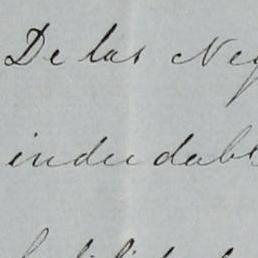 De las Neg
indudabl